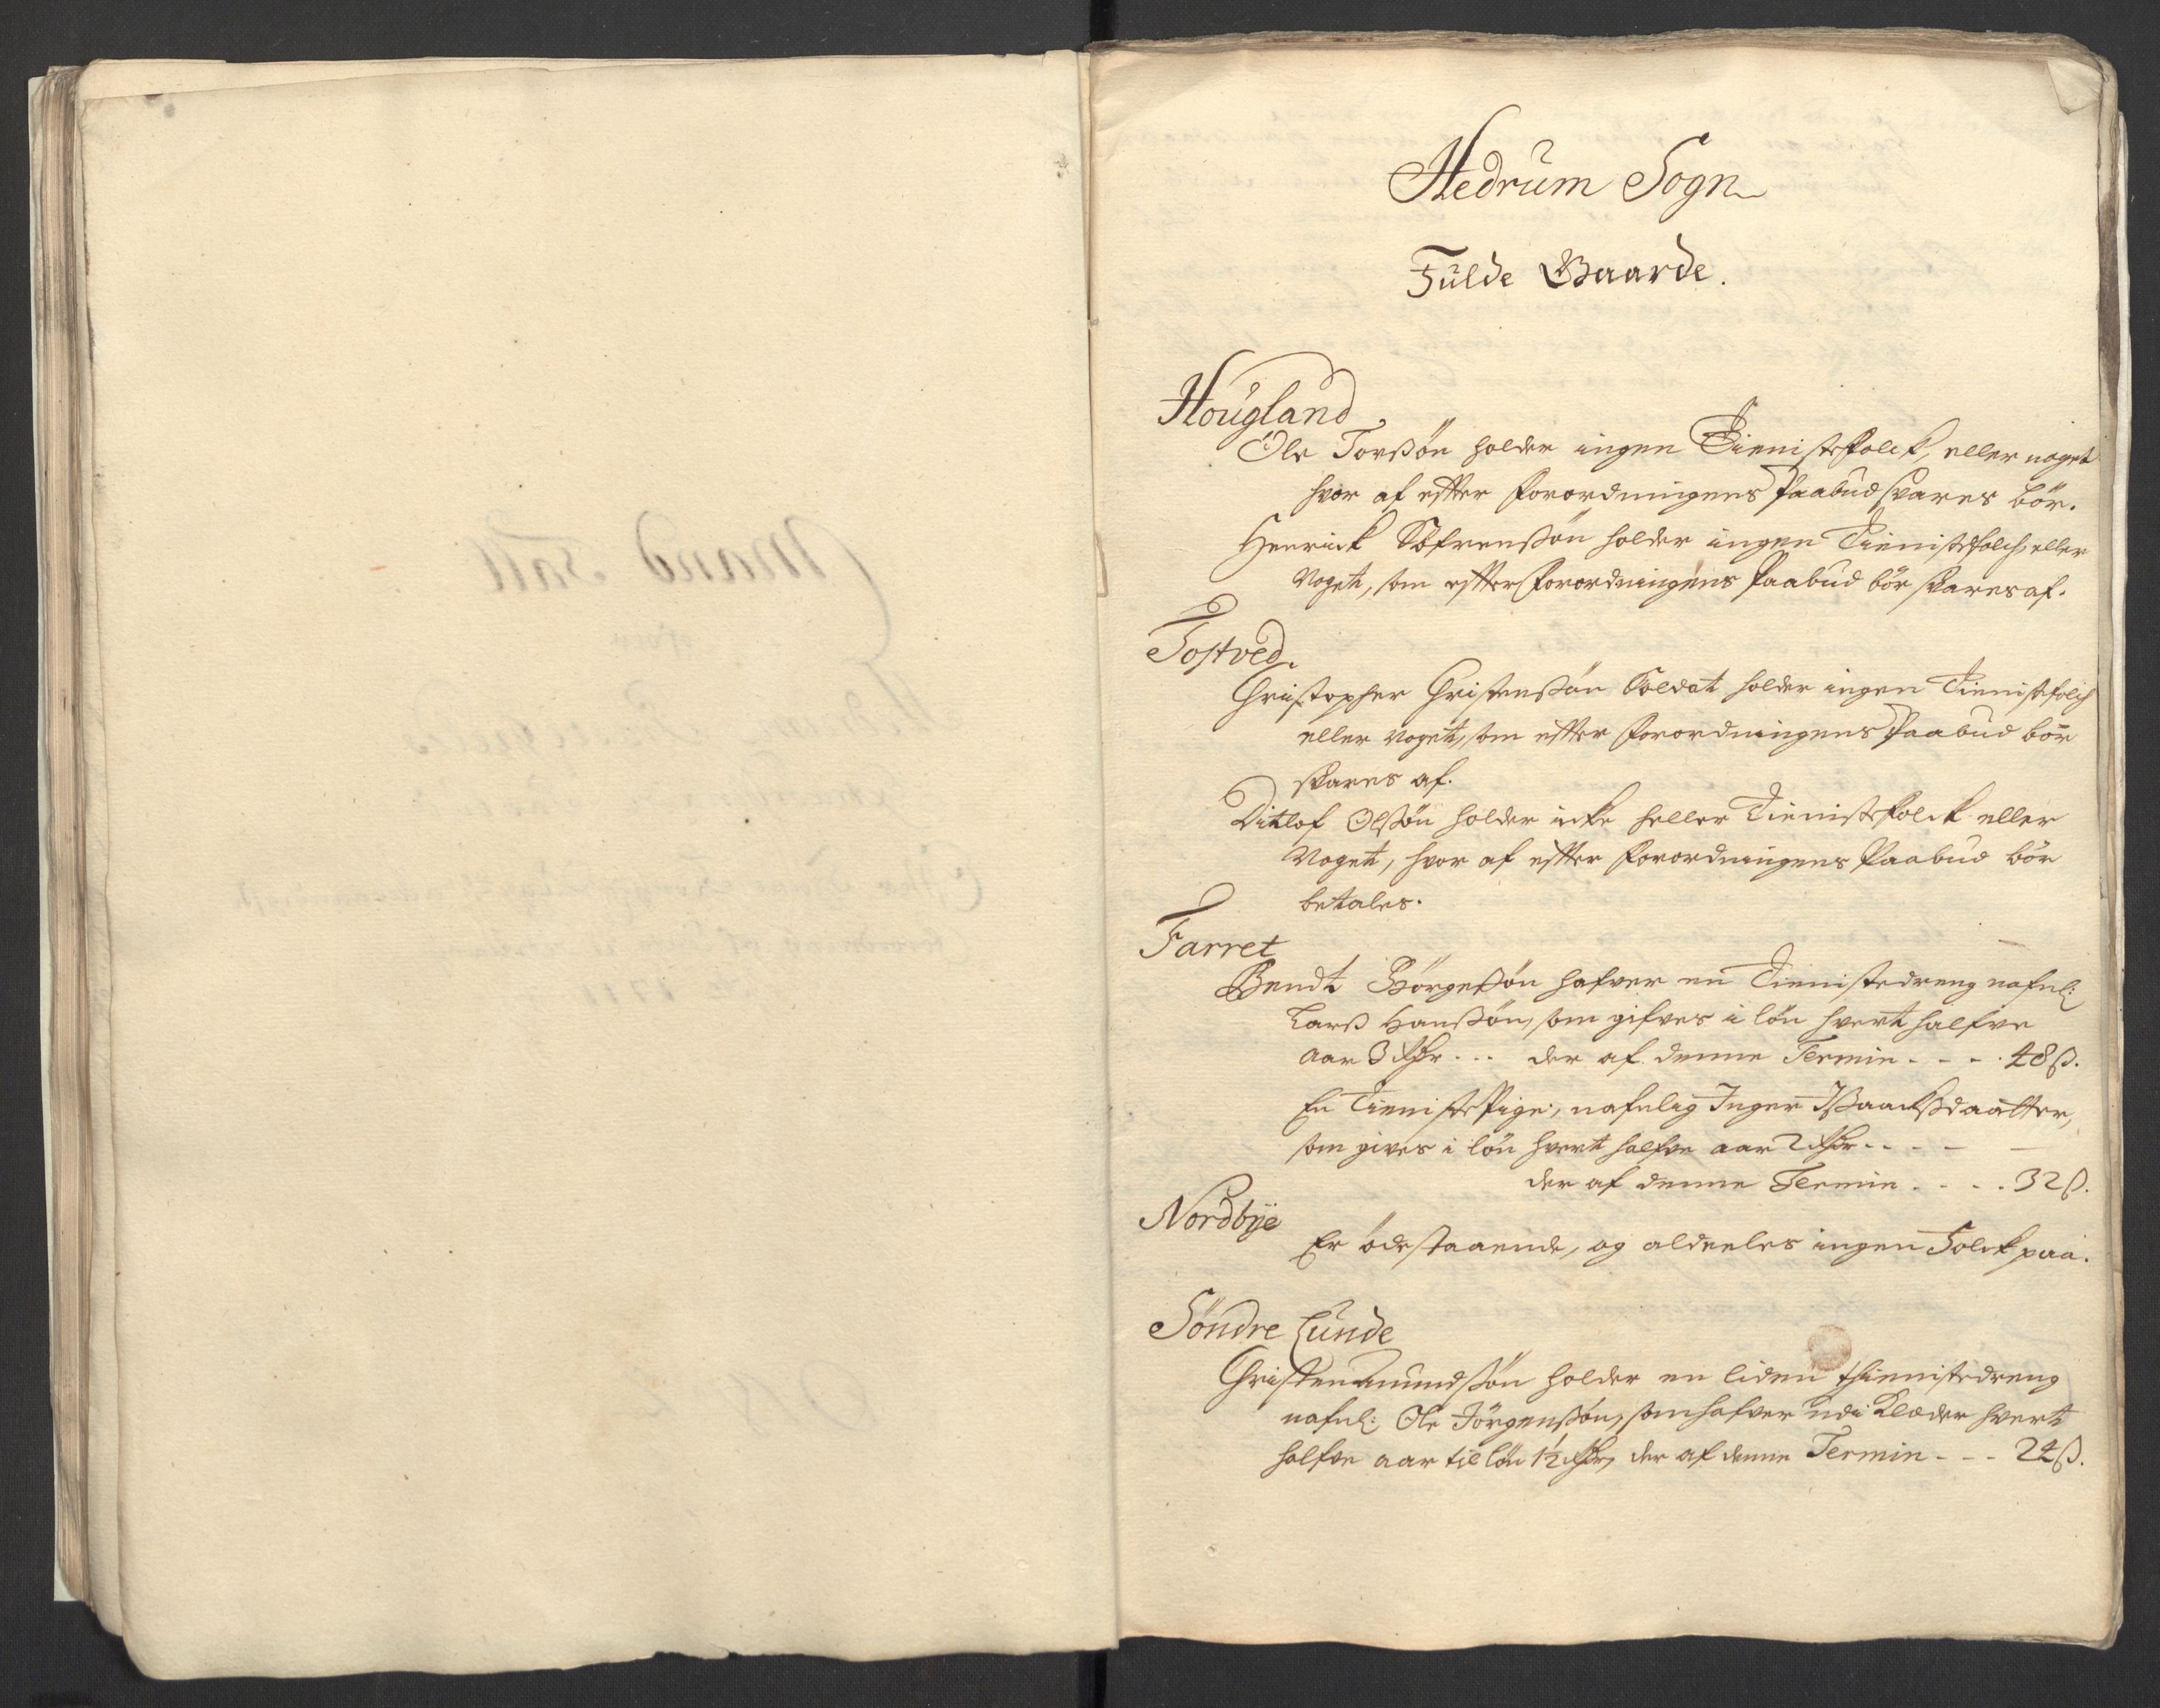 Hedrum Sogn
Fulde Gaarde.
Hougland
Ole Torsøn holder ingen Tieniste Folck, eller noget
hvor af efter Forordningens Paabud svares bör.
Henrick Söfrenßøn holder ingen Tienistefolch, eller
Noget, som efter Forordningens Paabud bör svares af.
Tostved.
Christopher Christenßøn Soldat holder ingen Tienistefolch
eller Noget, som efter Forordningens Paabud bör
svares af.
Ditlof Olßøn holder icke heller Tieniste Folck eller
Noget, hvor af efter Forordningens Paabud bör
betales.
Farret
Bendt Börgeßøn hafver en Tienistedreng nafnl:
Larß Hanßøn, som gifves i løn hvert halfve
Aar 3 Rdr... der af denne Termin - - - . 48 ß.
En Tieniste Pige, nafnlig Inger Ißaachßdaatter,
som gives i løn hvert halfve aar 2 Rdr. . - -
der af denne Termin . . . . 32 ß.
Nordbÿe
Er ödestaaende, og aldeeles ingen Folck paa.
Söndre Lunde
Christen Amundßøn holder en liden thienistedreng
nafnl: Ole Jörgenßøn, som hafver udi Klæder hvert
halfve aar til løn 1½ Rdr, der af denne Termin - - - 24 ß.
Mand Tall
1711